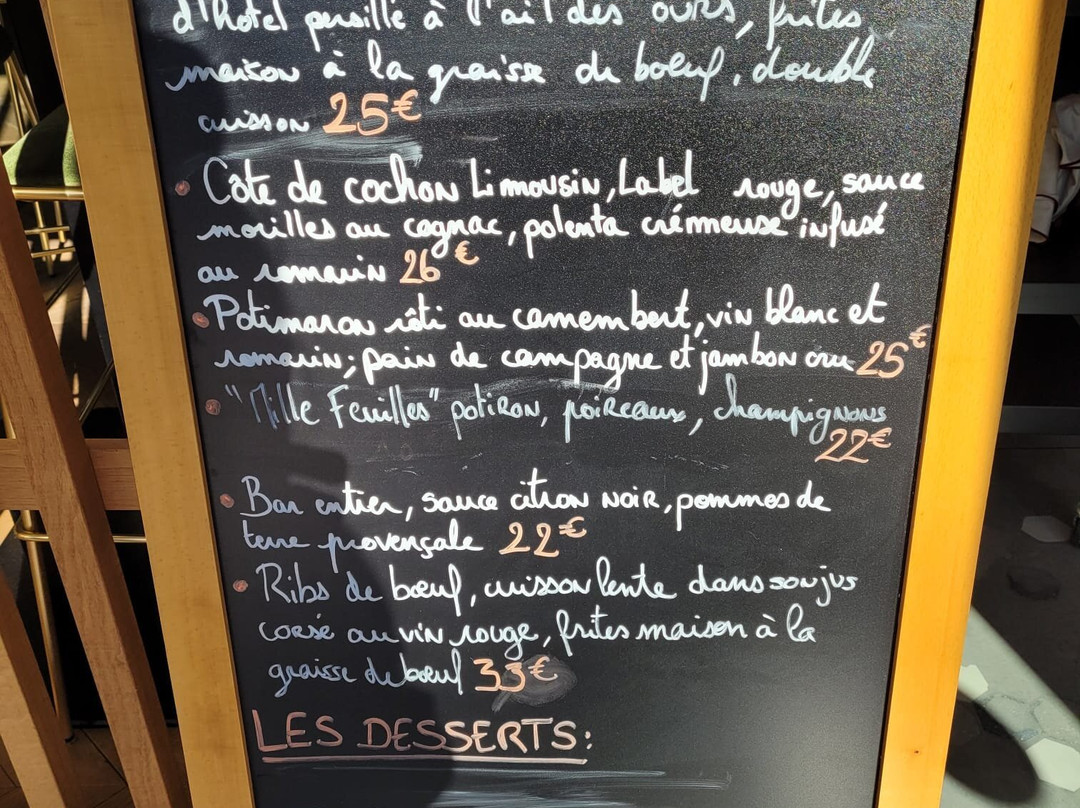 d'hôtel persillé à l'ail des ours, frites
maison à la graisse de boeuf, double
cuisson 25€
• Côte de cochon Limousin, Label rouge, sauce
morilles au cognac, polenta crémmeuse infusé
au romarin 26€
• Potimaron rôti au camembert, vin blanc et
romarin; pain de campagne et jambon cru 25€
• "Mille Feuilles" potiron, poireaux, champignons
22€
• Bar entier, sauce citron noir, pommes de
terre provençale 22€
• Ribs de bœuf, cuisson lente dans son jus
corsé au vin rouge, frites maison à la
graisse de bœuf 33€
LES DESSERTS: